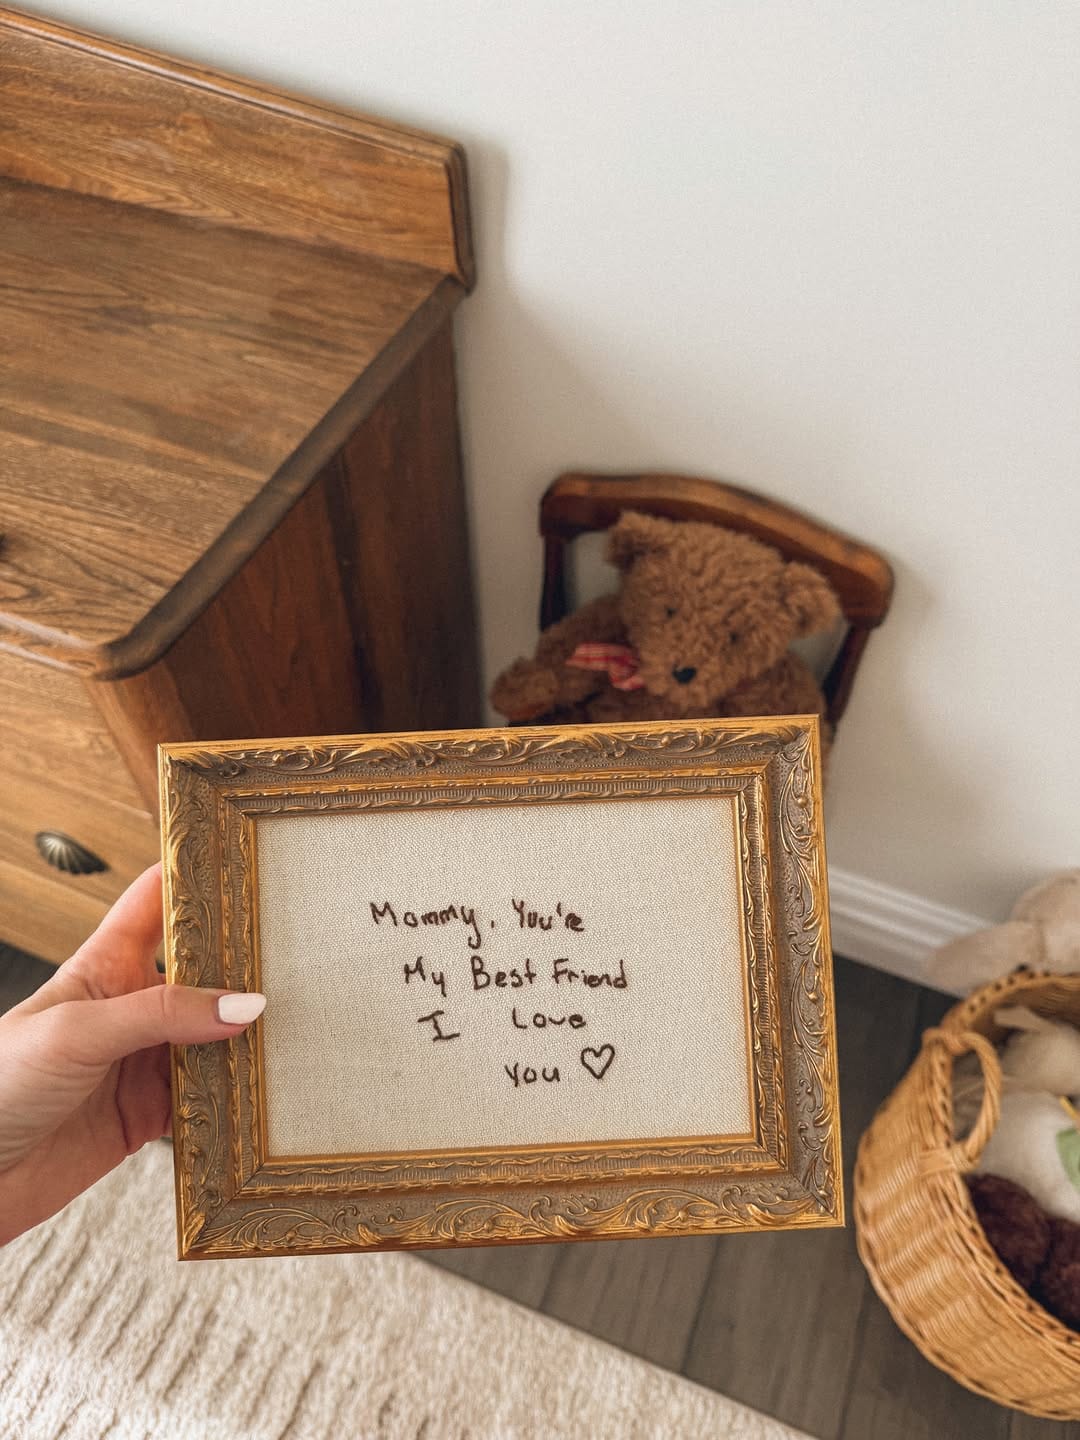 Mommy, You're
My Best Friend
I Love
You ♡